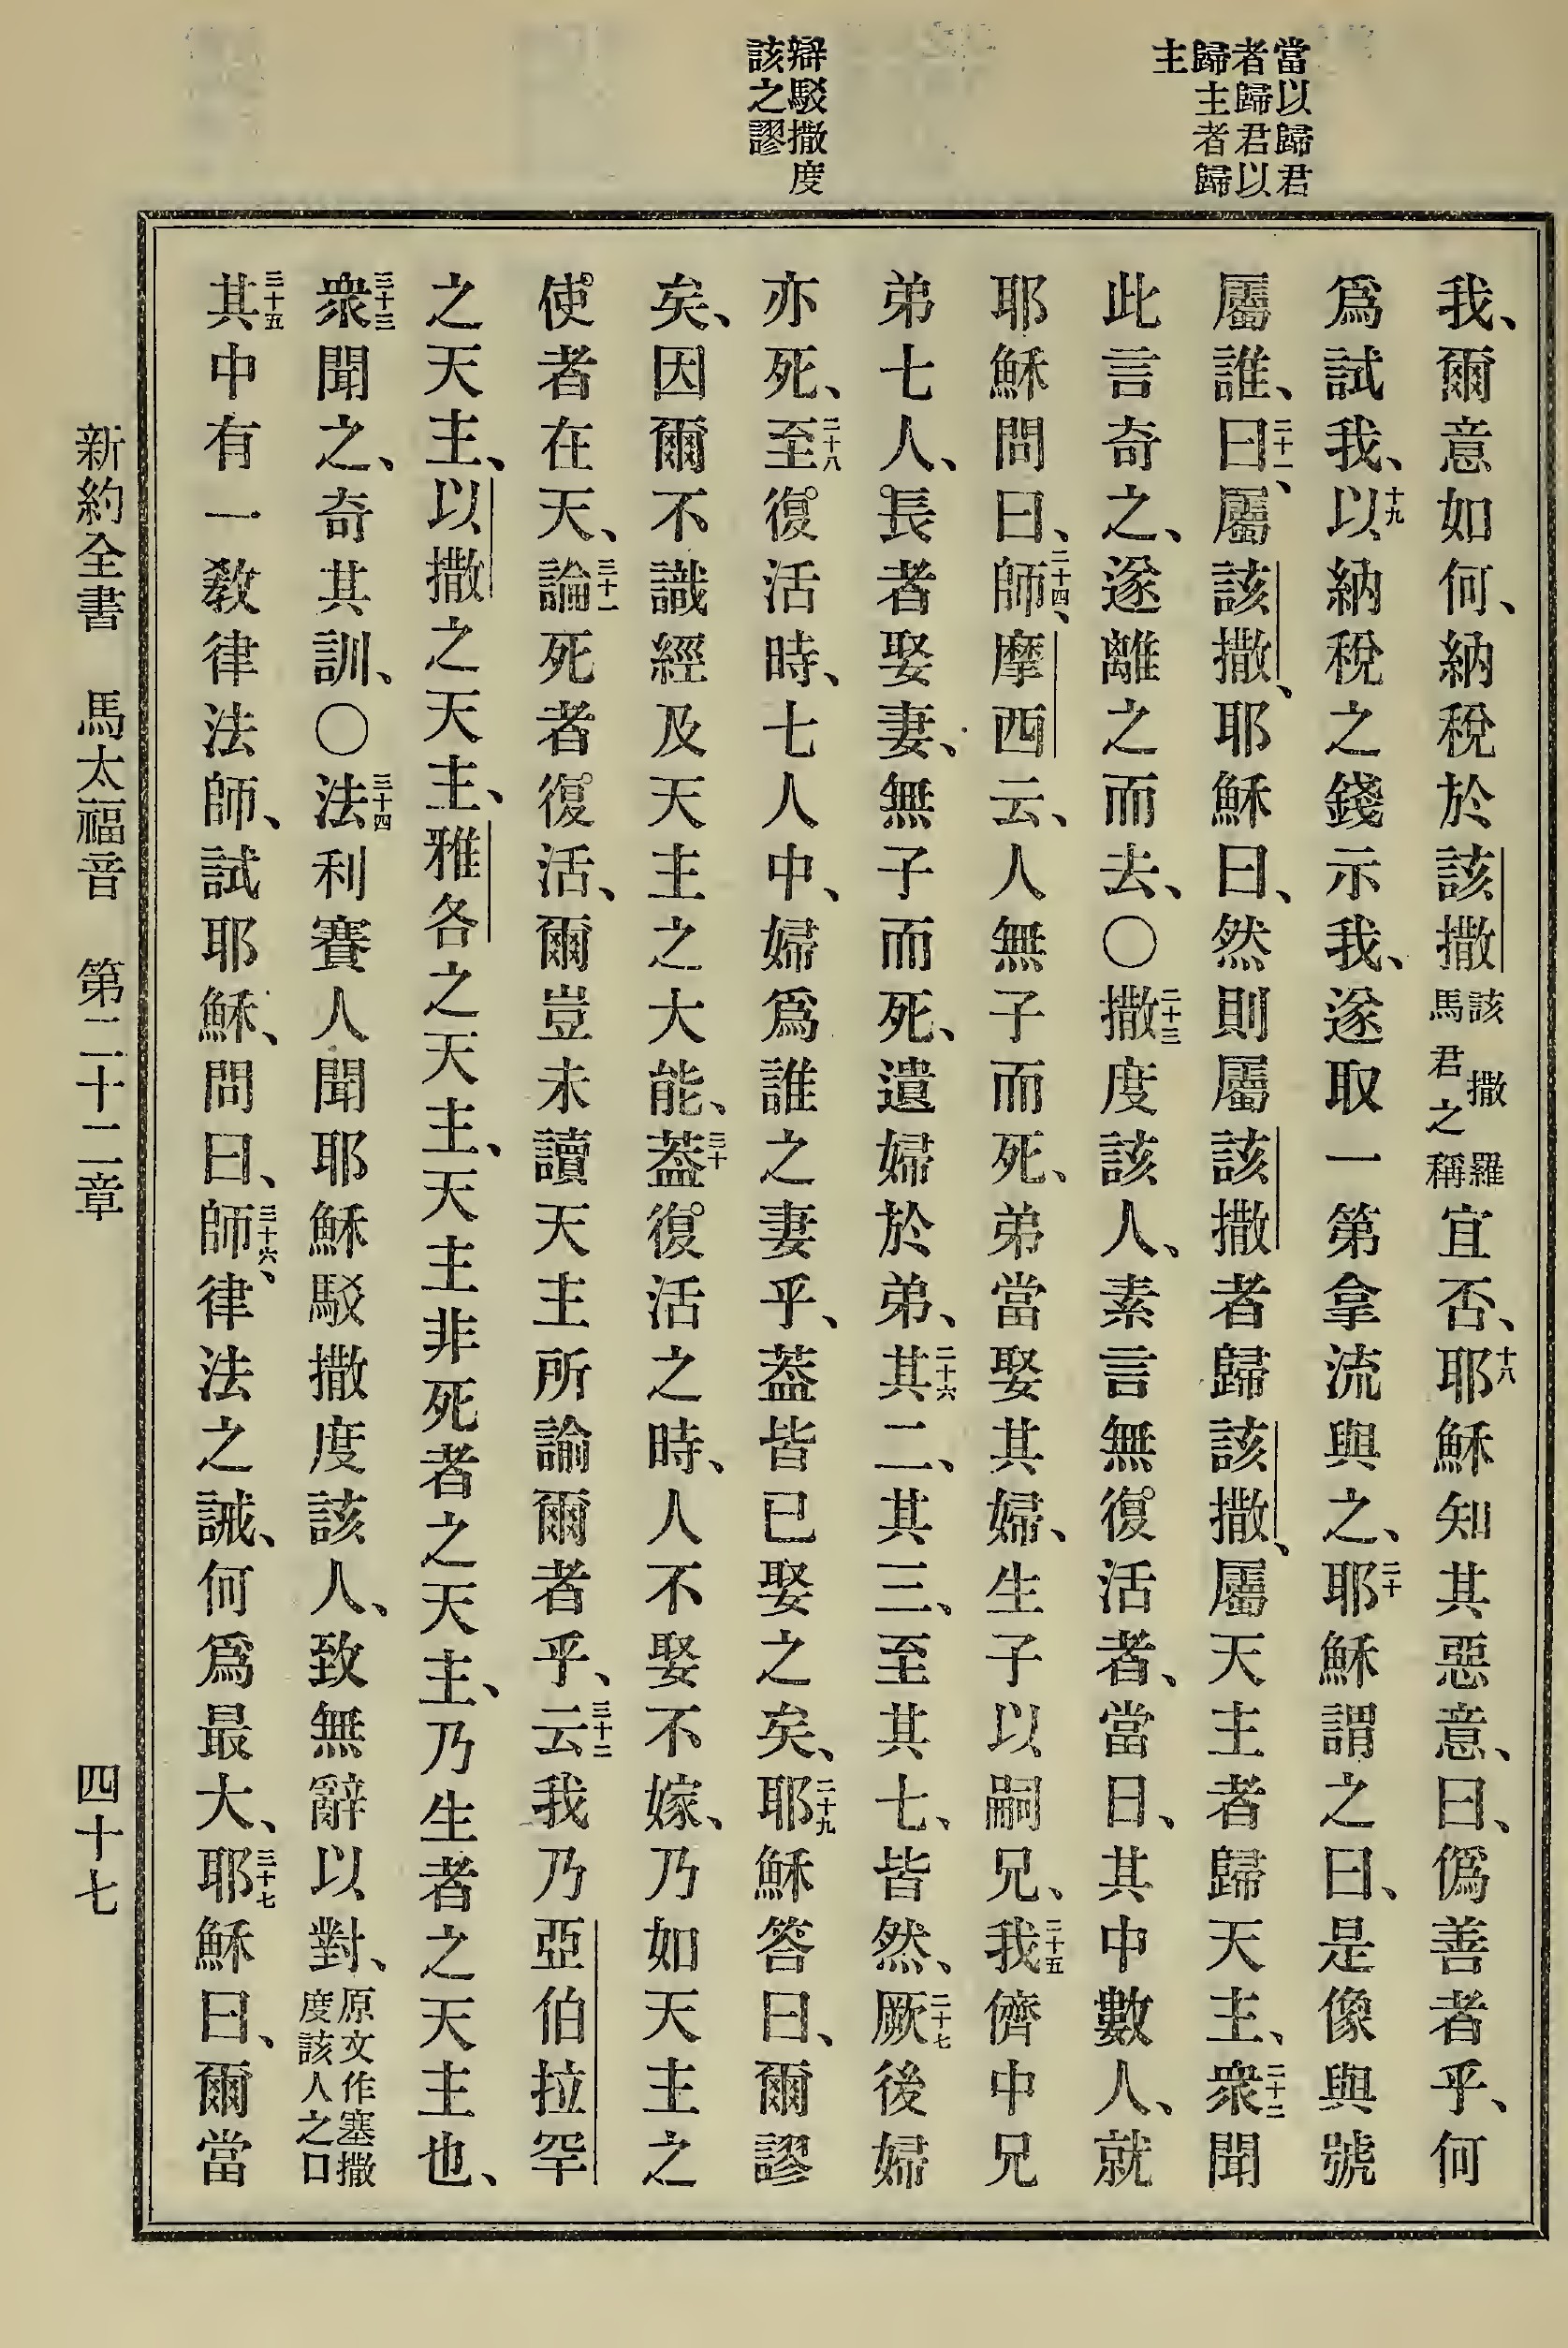 當以歸君
者歸君以
歸主者歸
主
辯駁撒度
該之謬
我、爾意如何、納稅於該撒該撒羅馬君之稱宜否、十八耶穌知其惡意、曰、僞善者乎、何
爲試我、十九以納稅之錢示我、遂取一第拿流與之、二十耶穌謂之曰、是像與號
屬誰、二十一曰、屬該撒、耶穌曰、然則屬該撒者歸該撒、屬天主者歸天主、二十二衆聞
此言奇之、遂離之而去、〇二十三撒度該人、素言無復活者、當日、其中數人、就
耶穌問曰、二十四師、摩西云、人無子而死、弟當娶其婦、生子以嗣兄、二十五我儕中兄
弟七人、長者娶妻、無子而死、遺婦於弟、二十六其二、其三、至其七、皆然、二十七厥後婦
亦死、二十八至復活時、七人中、婦爲誰之妻乎、蓋皆已娶之矣、二十九耶穌答曰、爾謬
矣、因爾不識經及天主之大能、三十蓋復活之時、人不娶不嫁、乃如天主之
使者在天、三十一論死者復活、爾豈未讀天主所諭爾者乎、三十二云我乃亞伯拉罕
之天主、以撒之天主、雅各之天主、天主非死者之天主、乃生者之天主也、
三十三衆聞之、奇其訓、〇三十四法利賽人聞耶穌駁撒度該人、致無辭以對、原文作塞撒度該人之口
三十五其中有一敎律法師、試耶穌、問曰、三十六師、律法之誡、何爲最大、三十七耶穌曰、爾當
新約全書 馬太福音 第二十二章 四十七